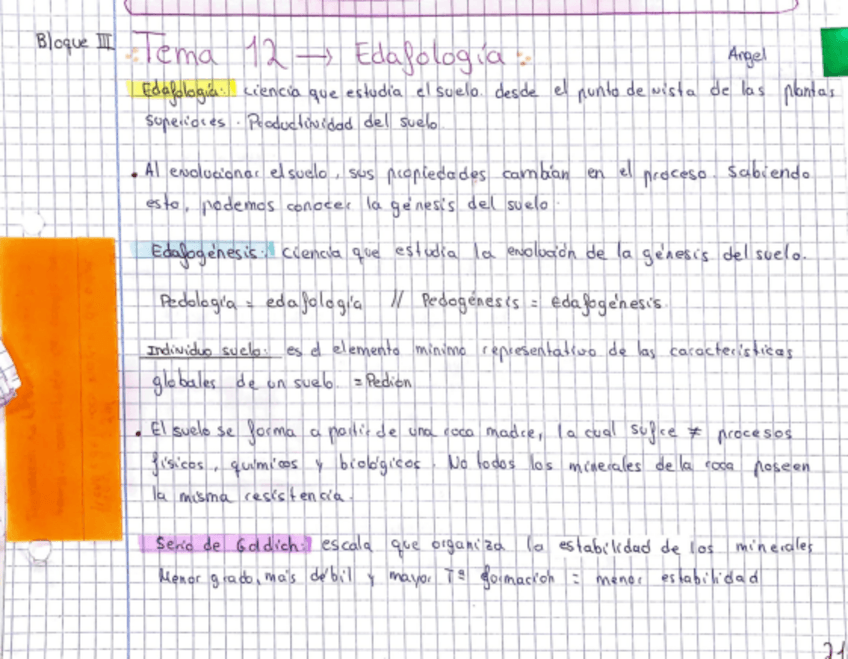 Bloque III
Tema 12 → Edafología
Angel
Edafología: ciencia que estudia el suelo desde el punto de vista de las plantas
superiores. Productividad del suelo
• Al evolucionar el suelo, sus propiedades cambian en el proceso. Sabiendo
esto, podemos conocer la génesis del suelo.
Edafogénesis: ciencia que estudia la evolución de la génesis del suelo.
Pedología = edafología // Pedogénesis = edafogénesis.
Individuo suelo: es el elemento mínimo representativo de las características
globales de un suelo. = Pedión
• El suelo se forma a partir de una roca madre, la cual sufre ≠ procesos
físicos, químicos y biológicos. No todos los minerales de la roca poseen
la misma resistencia.
Serie de Goldich: escala que organiza la estabilidad de los minerales
Menor grado, más débil y mayor Tª formación = menor estabilidad